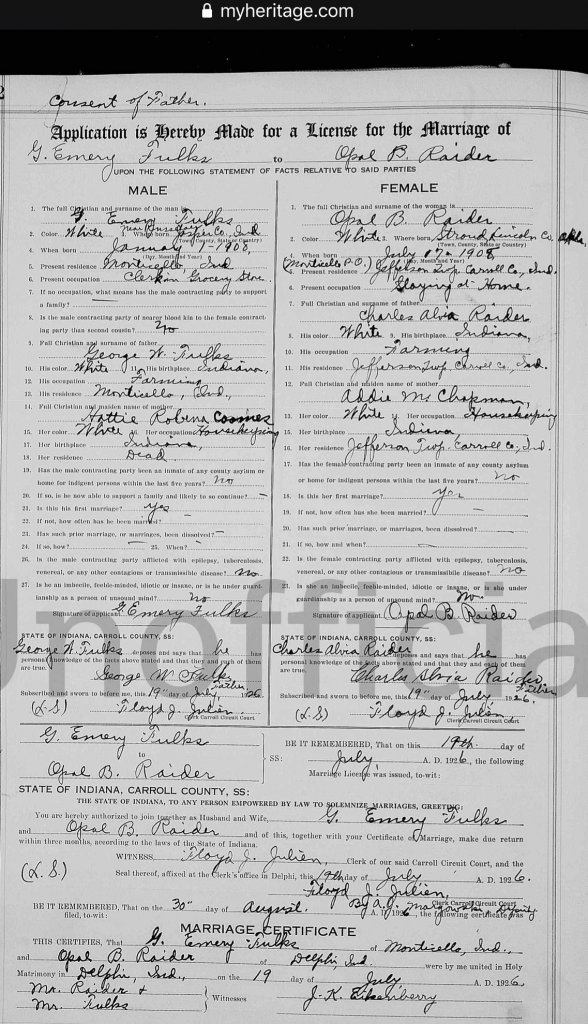 myheritage.com
Consent of Father.
Application is Hereby Made for a License for the Marriage of
G. Emery Fulks to Opal B. Raider
UPON THE FOLLOWING STATEMENT OF FACTS RELATIVE TO SAID PARTIES
MALE
1. The full Christian and surname of the man is
G. Emery Fulks
2. Color White 3. Where born Near Jasper Co., Ind
(Town, County, State or Country)
4. When born January 1 - 1908,
(Day, Month and Year)
5. Present residence Monticello Ind
6. Present occupation Clerk in Grocery Store
7. If no occupation, what means has the male contracting party to support
a family?
8. Is the male contracting party of nearer blood kin to the female contract-
ing party than second cousin? No
9. Full Christian and surname of father
George W. Fulks
10. His color White 11. His birthplace Indiana,
12. His occupation Farming
13. His residence Monticello, Ind,
14. Full Christian and maiden name of mother
Hattie Robina Coomes
15. Her color White 16. Her occupation Housekeeping
17. Her birthplace Indiana,
18. Her residence Dead
19. Has the male contracting party been an inmate of any county asylum
or home for indigent persons within the last five years? No
20. If so, is he now able to support a family and likely to so continue? —
21. Is this his first marriage? Yes
22. If not, how often has he been married? —
23. Has such prior marriage, or marriages, been dissolved? —
24. If so, how? — 25. When? —
26. Is the male contracting party afflicted with epilepsy, tuberculosis,
venereal, or any other contagious or transmissible disease? No
27. Is he an imbecile, feeble-minded, idiotic or insane, or is he under guard-
ianship as a person of unsound mind? No
Signature of applicant G. Emery Fulks
STATE OF INDIANA, CARROLL COUNTY, SS:
George W. Fulks deposes and says that he has
personal knowledge of the facts above stated and that they and each of them
are true. George W. Fulks
Father
Subscribed and sworn to before me, this 19" day of July, 1926
(L. S.) Floyd J. Julien
Clerk Carroll Circuit Court
FEMALE
1. The full Christian and surname of the woman is
Opal B. Raider
2. Color White 3. Where born Stroud Lincoln Co,
(Town, County, State or Country)
4. When born July 17 - 1908
(Day, Month and Year)
(Monticello P.O.)
5. Present residence Jefferson Twp. Carroll Co., Ind.
6. Present occupation Staying at Home.
7. Full Christian and surname of father
Charles Alvia Raider
8. His color White 9. His birthplace Indiana,
10. His occupation Farming
11. His residence Jefferson Twp. Carroll Co., Ind.
12. Full Christian and maiden name of mother
Addie Mc Chapman,
13. Her color White 14. Her occupation Housekeeping
15. Her birthplace Indiana
16. Her residence Jefferson Twp. Carroll Co., Ind.
17. Has the female contracting party been an inmate of any county asylum
or home for indigent persons within the last five years? No
18. Is this her first marriage? Yes
19. If not, how often has she been married?
20. Has such prior marriage, or marriages, been dissolved?
21. If so, how and when? —
22. Is the female contracting party afflicted with epilepsy, tuberculosis,
venereal, or any other contagious or transmissible disease? No
23. Is she an imbecile, feeble-minded, idiotic or insane, or is she under
guardianship as a person of unsound mind? No
Signature of applicant Opal B. Raider
STATE OF INDIANA, CARROLL COUNTY, SS:
Charles Alvia Raider deposes and says that he has
personal knowledge of the facts above stated and that they and each of them
are true. Charles Alvia Raider
Father
Subscribed and sworn to before me, this 19" day of July 1926.
(L. S.) Floyd J. Julien
Clerk Carroll Circuit Court
Unofficia
G. Emery Fulks
to
Opal B. Raider
SS:
BE IT REMEMBERED, That on this 19th day of
July, A. D. 1926, the following
Marriage License was issued, to-wit:
STATE OF INDIANA, CARROLL COUNTY, SS:
THE STATE OF INDIANA, TO ANY PERSON EMPOWERED BY LAW TO SOLEMNIZE MARRIAGES, GREETING:
You are hereby authorized to join together as Husband and Wife, G. Emery Fulks
and Opal B. Raider and of this, together with your Certificate of Marriage, make due return
within three months, according to the laws of the State of Indiana.
(L. S.)
WITNESS, Floyd J. Julien, Clerk of our said Carroll Circuit Court, and the
Seal thereof, affixed at the Clerk's office in Delphi, this 19th day of July A. D. 1926.
Floyd J. Julien,
Clerk Carroll Circuit Court
By A. J. Deputy
BE IT REMEMBERED, That on the 30" day of August. A. D. 1926, the following certificate was
filed, to-wit:
MARRIAGE CERTIFICATE
THIS CERTIFIES, That G. Emery Fulks of Monticello, Ind.,
and Opal B. Raider of Delphi Ind were by me united in Holy
Matrimony in Delphi, Ind., on the 19 day of July, A. D. 1926.
Mr. Raider &
Mr. Fulks
Witnesses
J. K. Eikenberry